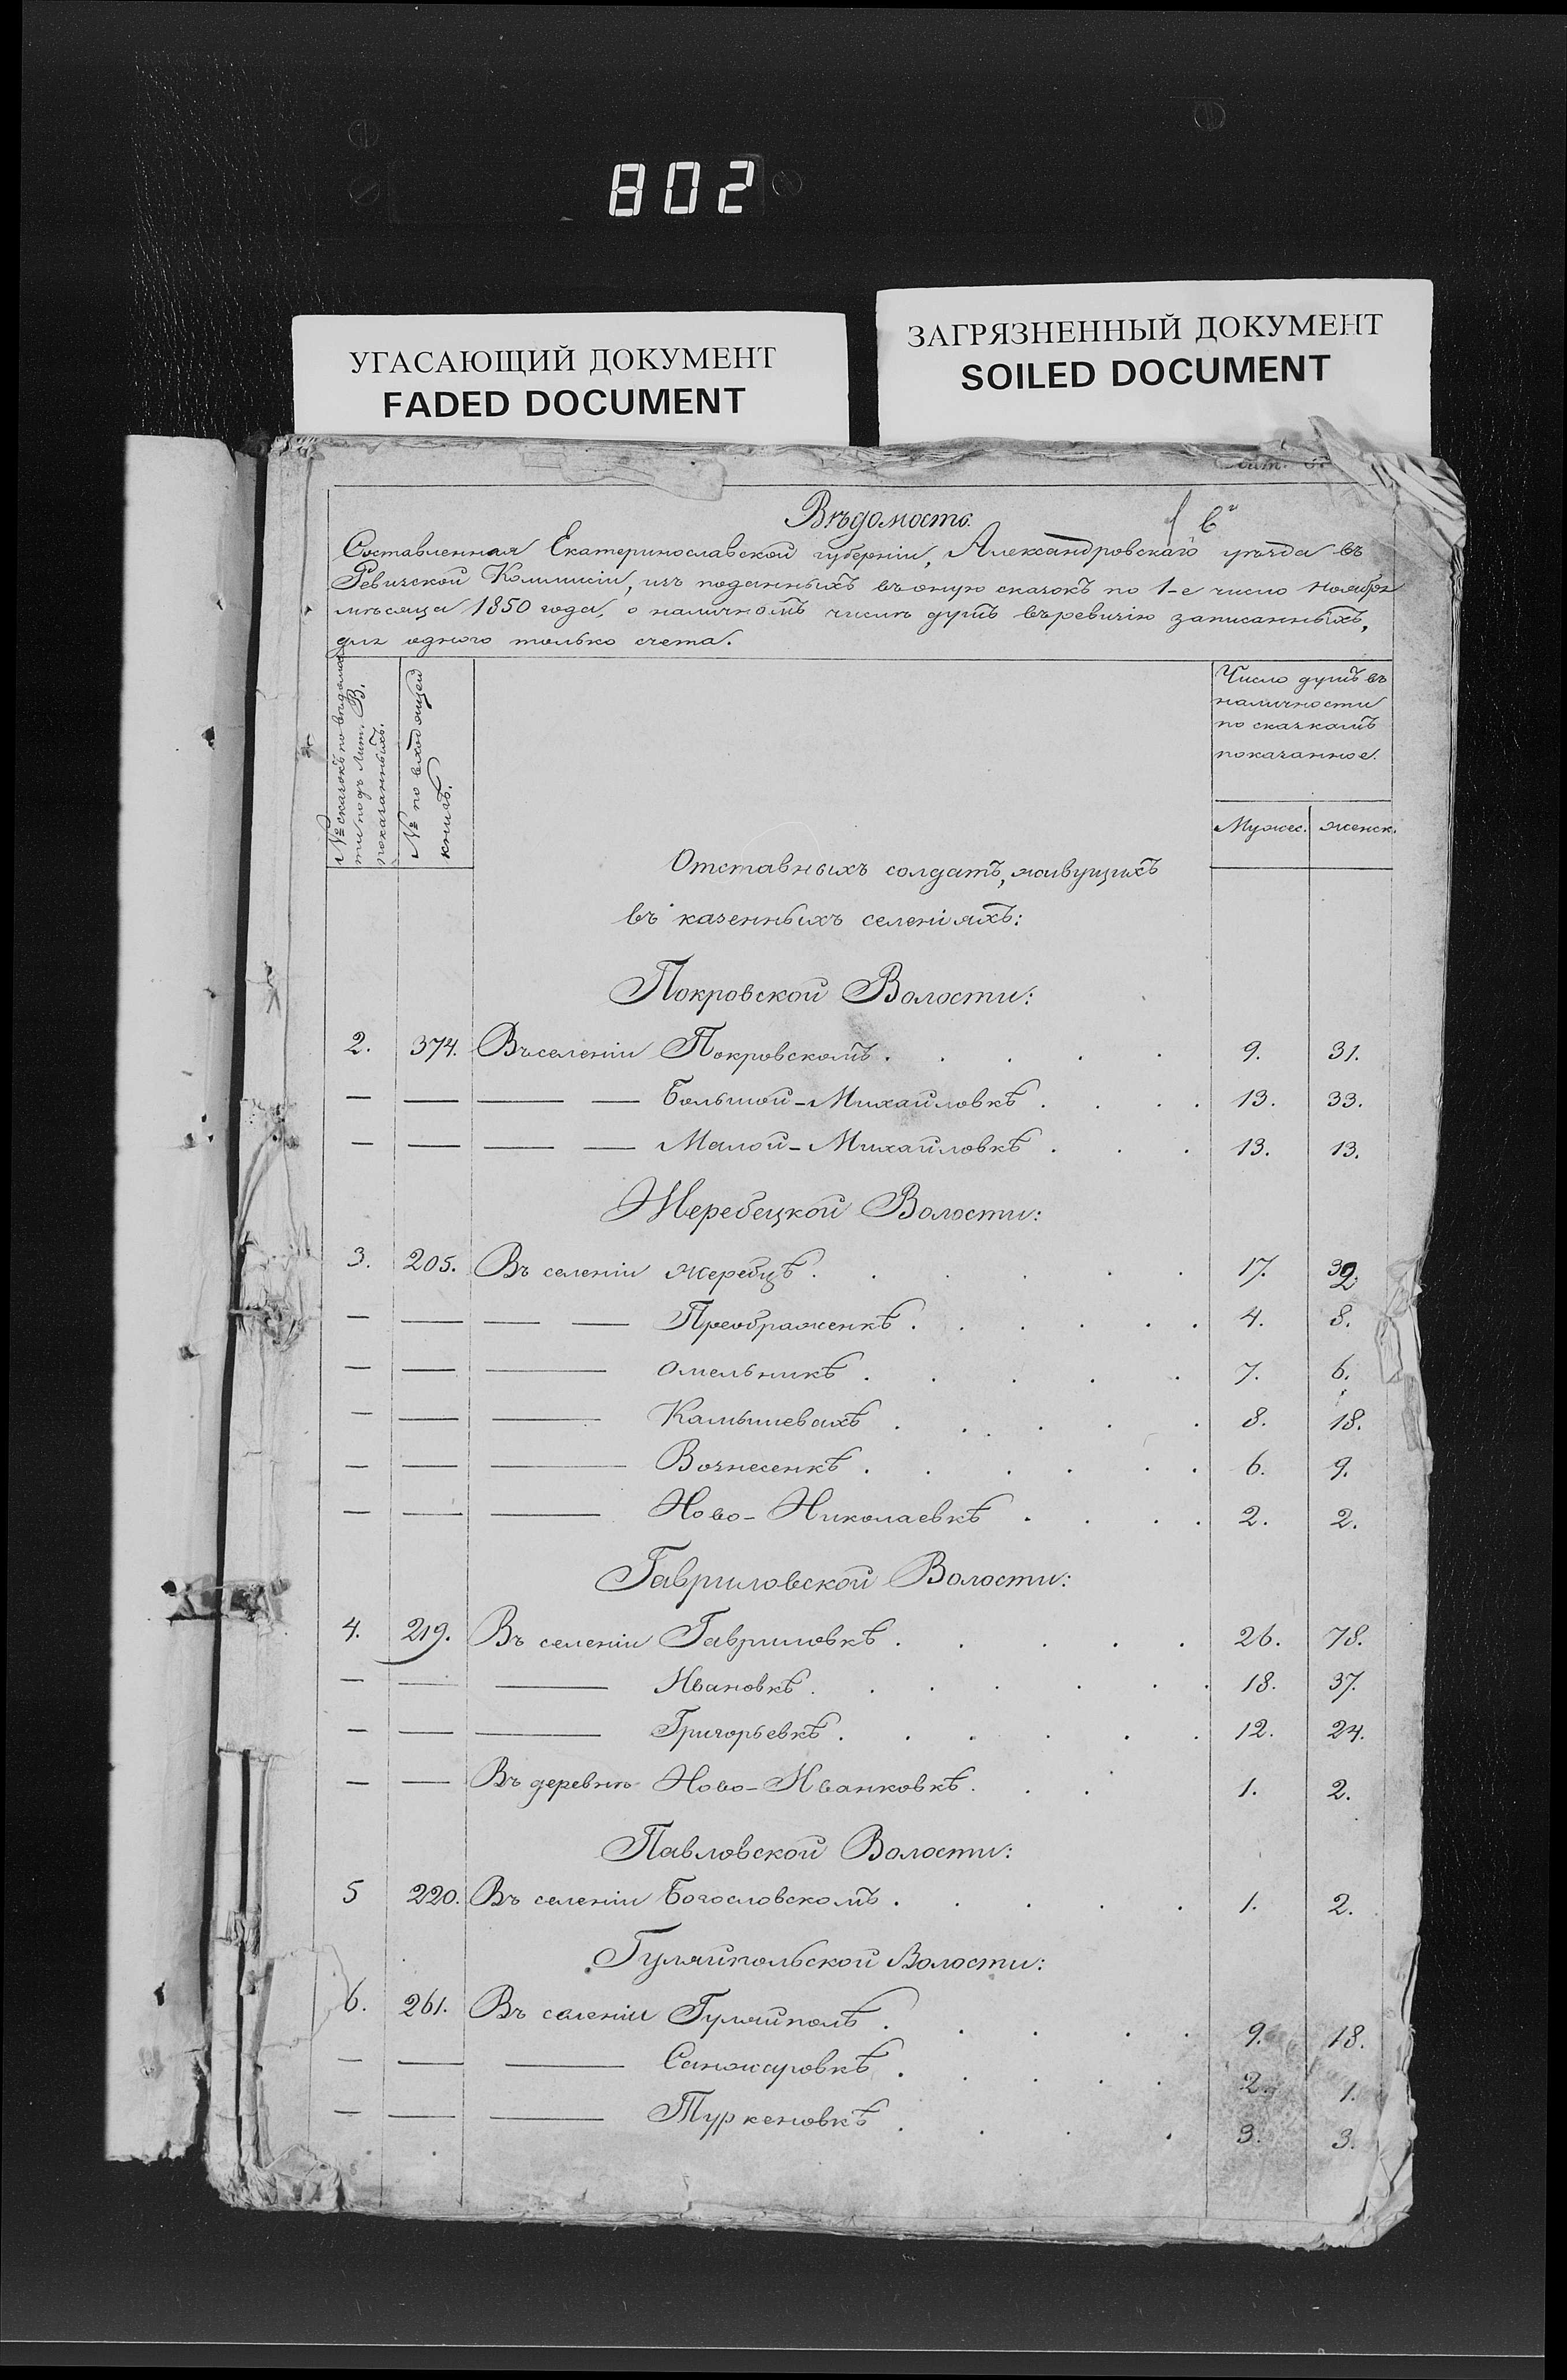 802
УГАСАЮЩИЙ ДОКУМЕНТ
FADED DOCUMENT
ЗАГРЯЗНЕННЫЙ ДОКУМЕНТ
SOILED DOCUMENT
Вѣдомость
Составленная Екатеринославской губерніи, Александровскаго уѣзда въ
Ревизской Коммисіи, изъ поданныхъ въ оную сказокъ по 1-е число Ноября
мѣсяца 1850 года, о наличномъ числѣ душъ въ ревизію записанныхъ,
для одного только счета.
№ сказокъ по вѣдомости подъ Лит. В. показанныхъ.
№ по входящей книгѣ.
Число душъ въ
наличности
по сказкамъ
показанное.
Мужес. женск.
Отставныхъ солдатъ, живущихъ
въ казенныхъ селеніяхъ:
Покровской Волости:
2. 374. Въ селеніи Покровскомъ . . . . . 9. 31.
— — — — Большой-Михайловкѣ . . . . 13. 33.
— — — — Малой-Михайловкѣ . . . 13. 13.
Жеребецкой Волости:
3. 205. Въ селеніи Жеребцѣ . . . . . . 17. 32.
— — — — Преображенкѣ . . . . . . 4. 8.
— — — Омельникѣ . . . . . 7. 6.
— — — Камышевахѣ . . . . . . 8. 18.
— — — Вознесенкѣ . . . . . . 6. 9.
— — — Ново-Николаевкѣ . . . . 2. 2.
Гавриловской Волости:
4. 219. Въ селеніи Гавриловкѣ . . . . . 26. 78.
— — — Ивановкѣ . . . . . . . 18. 37.
— — — Григорьевкѣ . . . . . . 12. 24.
— — Въ деревнѣ Ново-Иванковкѣ . . . . 1. 2.
Павловской Волости:
5 220. Въ селеніи Богословскомъ . . . . . 1. 2.
Гуляйпольской Волости:
6. 261. Въ селеніи Гуляйполѣ . . . . . 9. 18.
— — — Санжаровкѣ . . . . . 2. 1.
— — — Туркеновкѣ . . . . 3. 3.